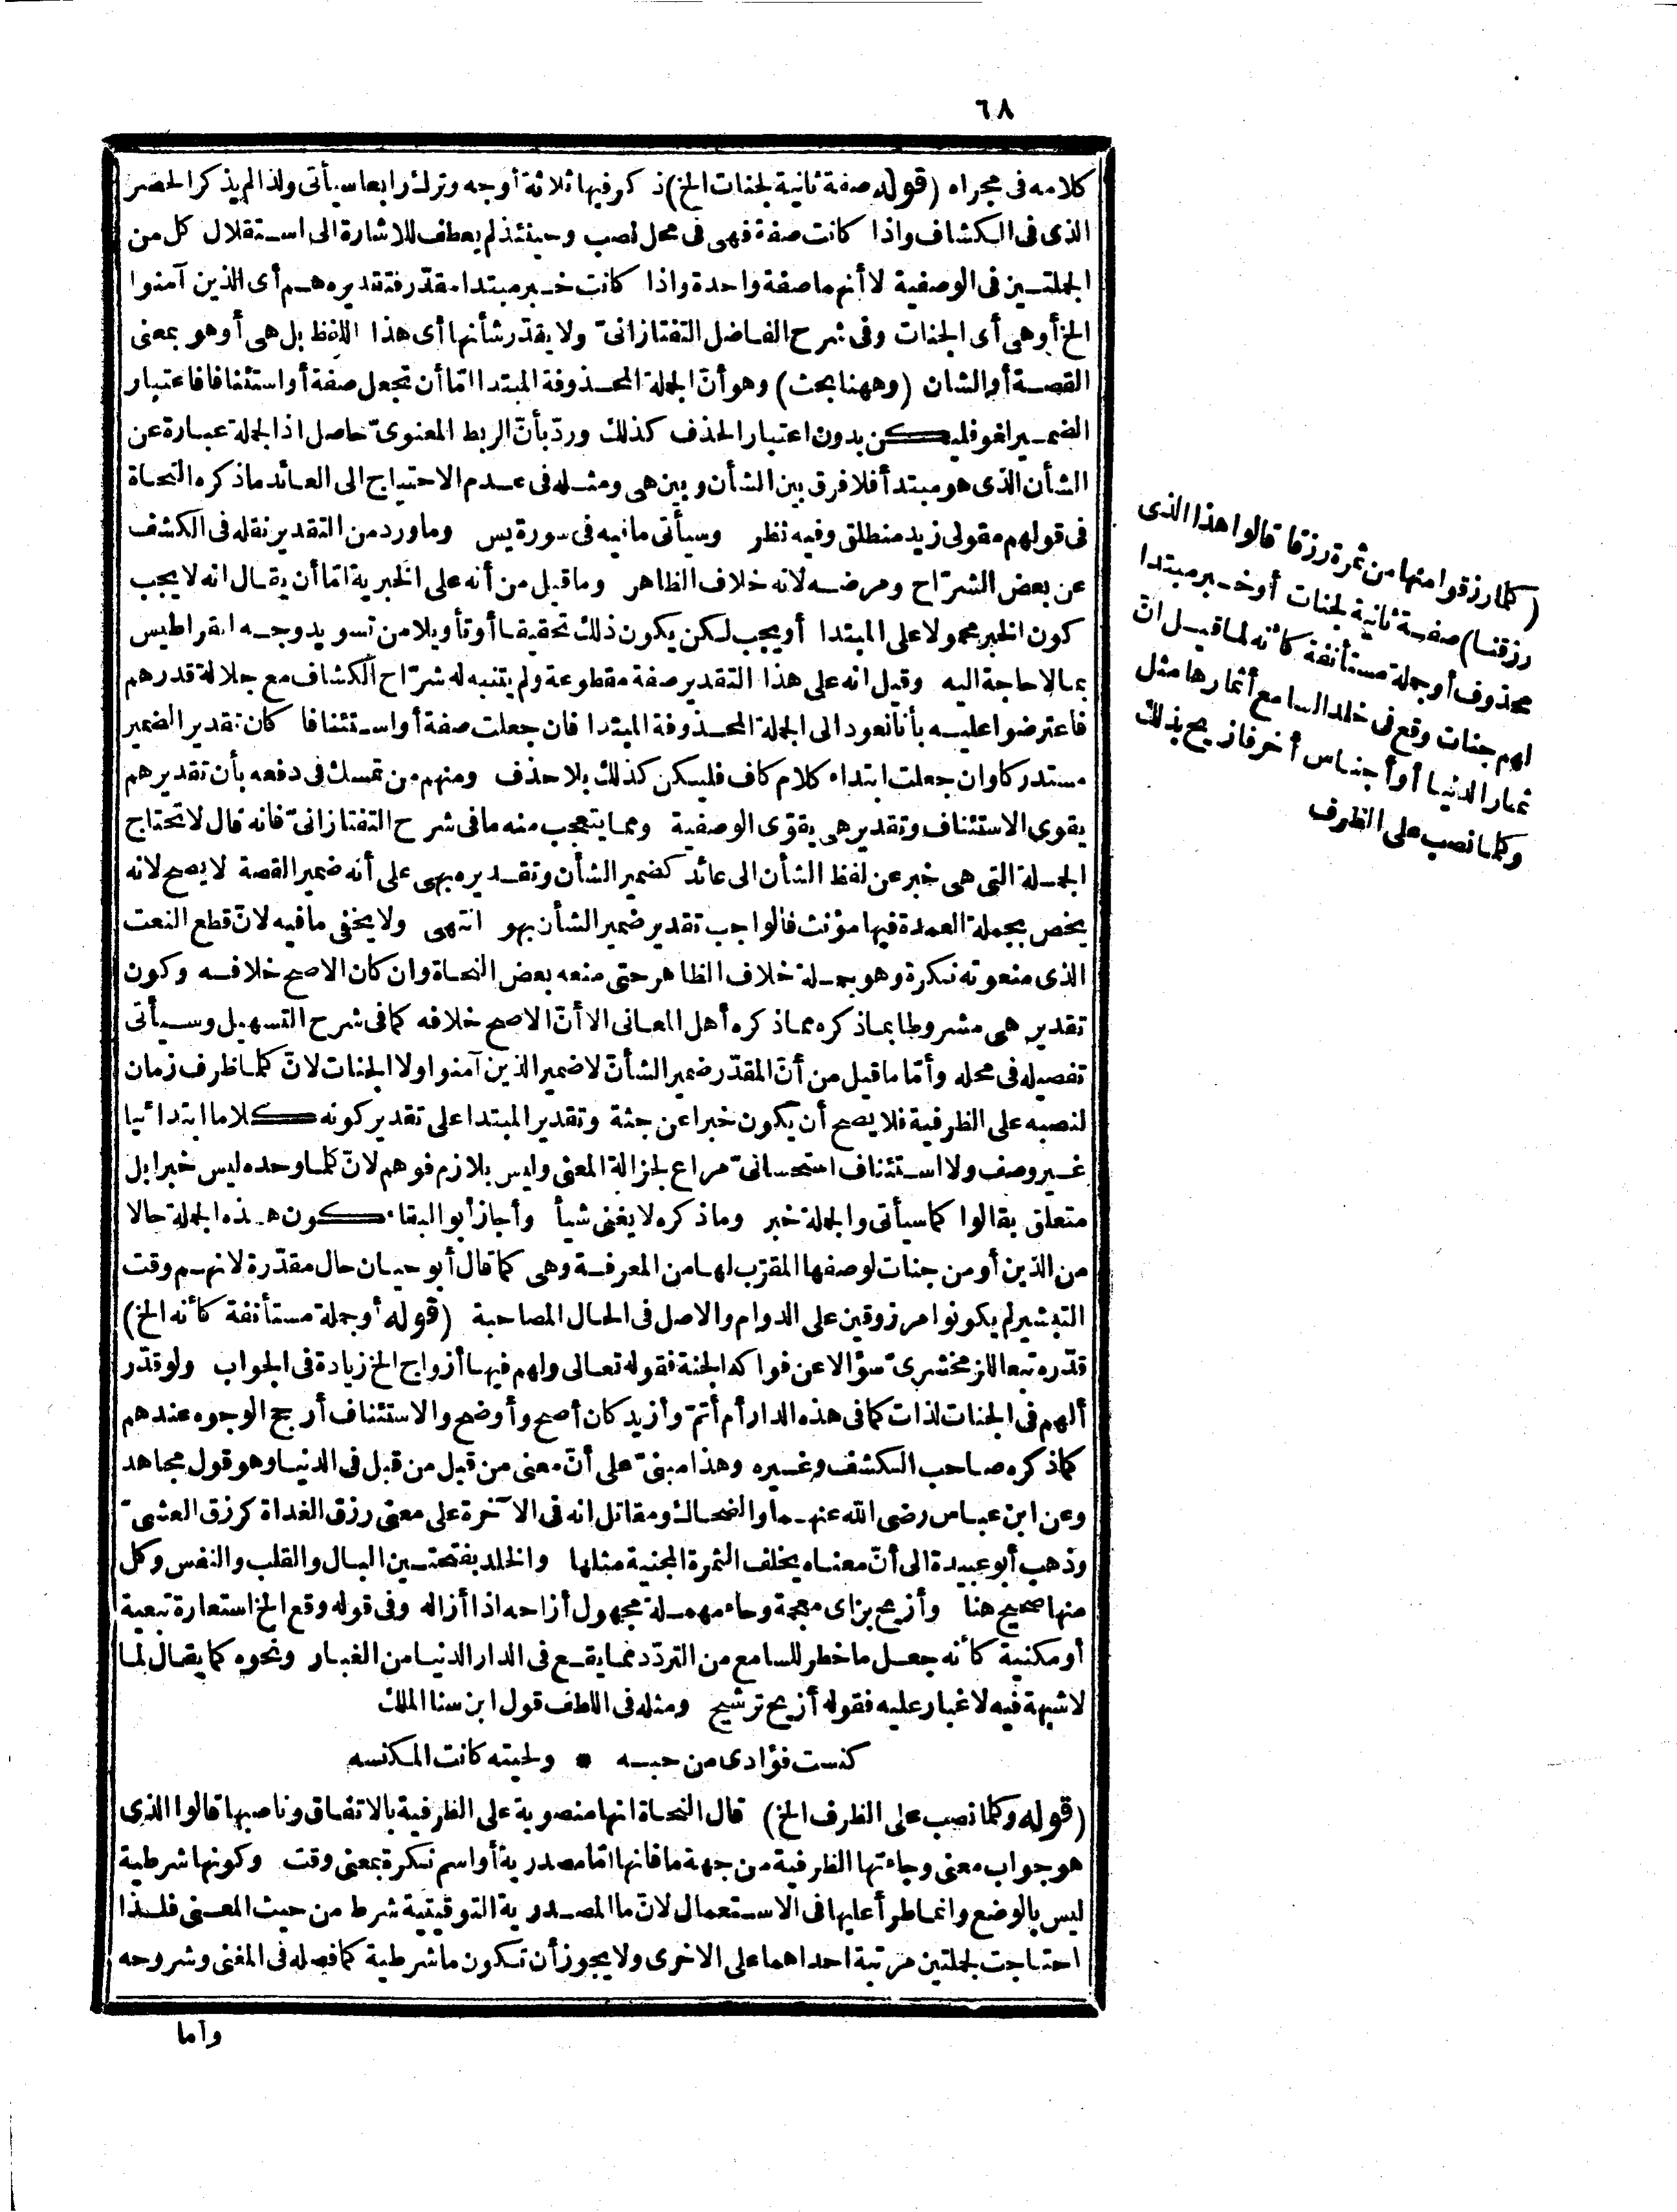 ٦٨
كلامه فى مجراه (قوله صفة ثانية لجنات الخ) ذكر فيها ثلاثة أوجه وترك رابعا سيأتى ولذا لم يذكر الحصر
الذى فى الكشاف واذا كانت صفة فهى فى محل نصب وحينئذ لم يعطف للاشارة الى استقلال كل من
الجملتين فى الوصفية لا أنهما صفة واحدة واذا كانت خبر مبتدا مقدّر فتقديره هم أى الذين آمنوا
الخ أو هى أى الجنات وفى شرح الفاضل التفتازانىّ ولا يقدّر شأنها أى هذا اللفظ بل هى أو هو بمعنى
القصة أو الشان (وههنا بحث) وهو أنّ الجملة المحذوفة المبتدا امّا أن تجعل صفة أو استئنافا فاعتبار
الضمير لغو فليكن بدون اعتبار الحذف كذلك وردّ بأنّ الربط المعنوىّ حاصل اذ الجملة عبارة عن
الشأن الذى هو مبتدأ فلا فرق بين الشأن وبين هى ومثله فى عدم الاحتياج الى العائد ماذكره النحاة
فى قولهم مقولى زيد منطلق وفيه نظر وسيأتى ما فيه فى سورة يس وما ورد من التقدير نقله فى الكشف
عن بعض الشرّاح ومرضه لانه خلاف الظاهر وما قيل من أنه على الخبرية امّا أن يقال انه لا يجب
كون الخبر محمولا على المبتدا أو يجب لكن يكون ذلك تحقيقا أو تأويلا من تسويد وجه القراطيس
بما لا حاجة اليه وقيل انه على هذا التقدير صفة مقطوعة ولم يتنبه له شرّاح الكشاف مع جلالة قدرهم
فاعترضوا عليه بأنا نعود الى الجملة المحذوفة المبتدا فان جعلت صفة أو استئنافا كان تقدير الضمير
مستدركا وان جعلت ابتداء كلام كاف فليكن كذلك بلا حذف ومنهم من تمسك فى دفعه بأن تقديرهم
يقوى الاستئناف وتقدير هى يقوّى الوصفية ومما يتعجب منه ما فى شرح التفتازانىّ فانه قال لا تحتاج
الجملة التى هى خبر عن لفظ الشأن الى عائد كضمير الشأن وتقديره بهى على أنه ضمير القصة لا يصح لانه
يخص بجملة العمدة فيها مؤنث فالواجب تقدير ضمير الشأن بهو انتهى ولا يخفى ما فيه لانّ قطع النعت
الذى منعوته نكرة وهو جملة خلاف الظاهر حتى منعه بعض النحاة وان كان الاصح خلافه وكون
تقدير هى مشروطا بماذكره مماذكره أهل المعانى الا أنّ الاصح خلافه كما فى شرح التسهيل وسيأتى
تفصيله فى محله وأمّا ما قيل من أنّ المقدّر ضمير الشأن لا ضمير الذين آمنوا ولا الجنات لانّ كلما ظرف زمان
لنصبه على الظرفية فلا يصح أن يكون خبرا عن جثة وتقدير المبتدا على تقدير كونه كلاما ابتدائيا
غير وصف ولا استئناف استحسانىّ مراع لجزالة المعنى وليس بلازم فوهم لانّ كلما وحده ليس خبرا بل
متعلق بقالوا كما سيأتى والجملة خبر وماذكره لا يغنى شيأ وأجاز أبو البقاء كون هذه الجملة حالا
من الذين أو من جنات لوصفها المقرّب لها من المعرفة وهى كما قال أبو حيان حال مقدّرة لانهم وقت
التبشير لم يكونوا مرزوقين على الدوام والاصل فى الحال المصاحبة (قوله أو جملة مستأنفة كأنه الخ)
قدّره تبعا للزمخشرىّ سؤالا عن فواكه الجنة فقوله تعالى ولهم فيها أزواج الخ زيادة فى الجواب ولو قدّر
ألهم فى الجنات لذات كما فى هذه الدار أم أتمّ وأزيد كان أصح وأوضح والاستئناف أرجح الوجوه عندهم
كماذكره صاحب الكشف وغيره وهذا مبنىّ على أنّ معنى من قبل من قبل فى الدنيا وهو قول مجاهد
وعن ابن عباس رضى الله عنهما والضحاك ومقاتل انه فى الآخرة على معنى رزق الغداة كرزق العشىّ
وذهب أبو عبيدة الى أنّ معناه يخلف الثمرة المجنية مثلها والخلد بفتحتين البال والقلب والنفس وكل
منها صحيح هنا وأزيح بزاى معجمة وحاء مهملة مجهول أزاحه اذا أزاله وفى قوله وقع الخ استعارة تبعية
أو مكنية كأنه جعل ما خطر للسامع من التردّد مما يقع فى الدار الدنيا من الغبار ونحوه كما يقال لما
لا شبهة فيه لا غبار عليه فقوله أزيح ترشيح ومثله فى اللطف قول ابن سنا الملك
كنست فؤادى من حبه * ولحيته كانت المكنسه
(قوله وكلما نصب على الظرف الخ) قال النحاة انها منصوبة على الظرفية بالاتفاق وناصبها قالوا الذى
هو جواب معنى وجاءتها الظرفية من جهة ما فانها امّا مصدرية أو اسم نكرة بمعنى وقت وكونها شرطية
ليس بالوضع وانما طرأ عليها فى الاستعمال لانّ ما المصدرية التوقيتية شرط من حيث المعنى فلذا
احتاجت لجملتين مرتبة احداهما على الاخرى ولا يجوز أن تكون ما شرطية كما فصله فى المغنى وشروحه
وأما
(كلما رزقوا منها من ثمرة رزقا قالوا هذا الذى
رزقنا) صفة ثانية لجنات أو خبر مبتدا
محذوف أو جملة مستأنفة كأنه لما قيل انّ
لهم جنات وقع فى خلد السامع أثمارها مثل
ثمار الدنيا أو أجناس أخر فازيح بذلك
وكلما نصب على الظرف